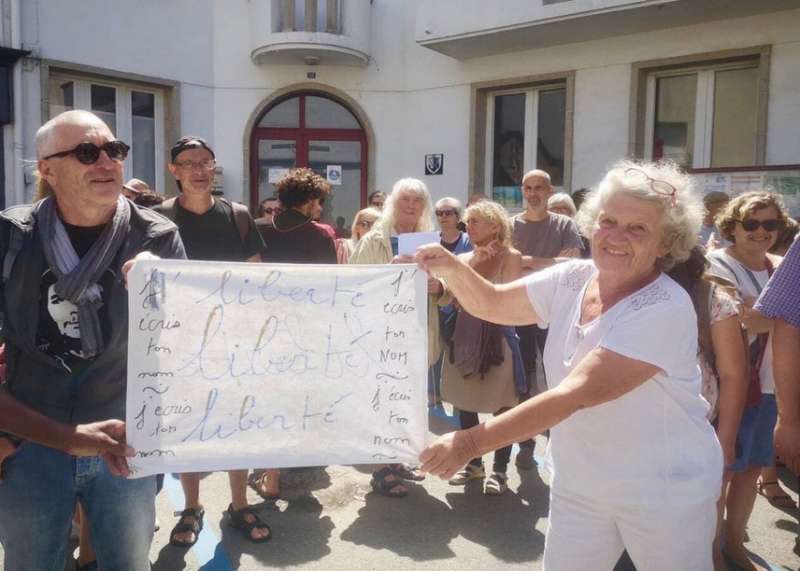 j'
écris
ton
nom
j'écris
ton
nom
liberté
liberté
liberté
j'
écris
ton
NOM
j'écris
ton
nom